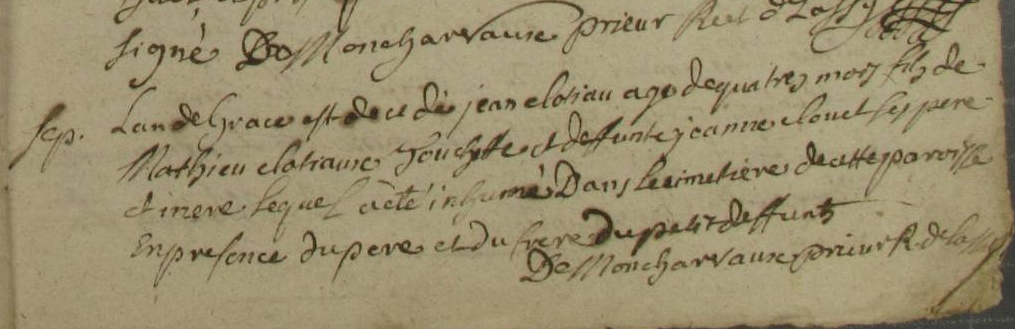 signé De Moncharvaux prieur Rect de Lassy
sep. Lan de grace est decedé jean elotiau age de quatres mois filz de
Mathieu elotiaux et deffunte jeanne clouet ses pere
et mere lequel a eté inhumé Dans le cimetiere de cette paroisse
En presence du pere et du frere du petit deffunt
De Moncharvaux prieur R. de Lassy